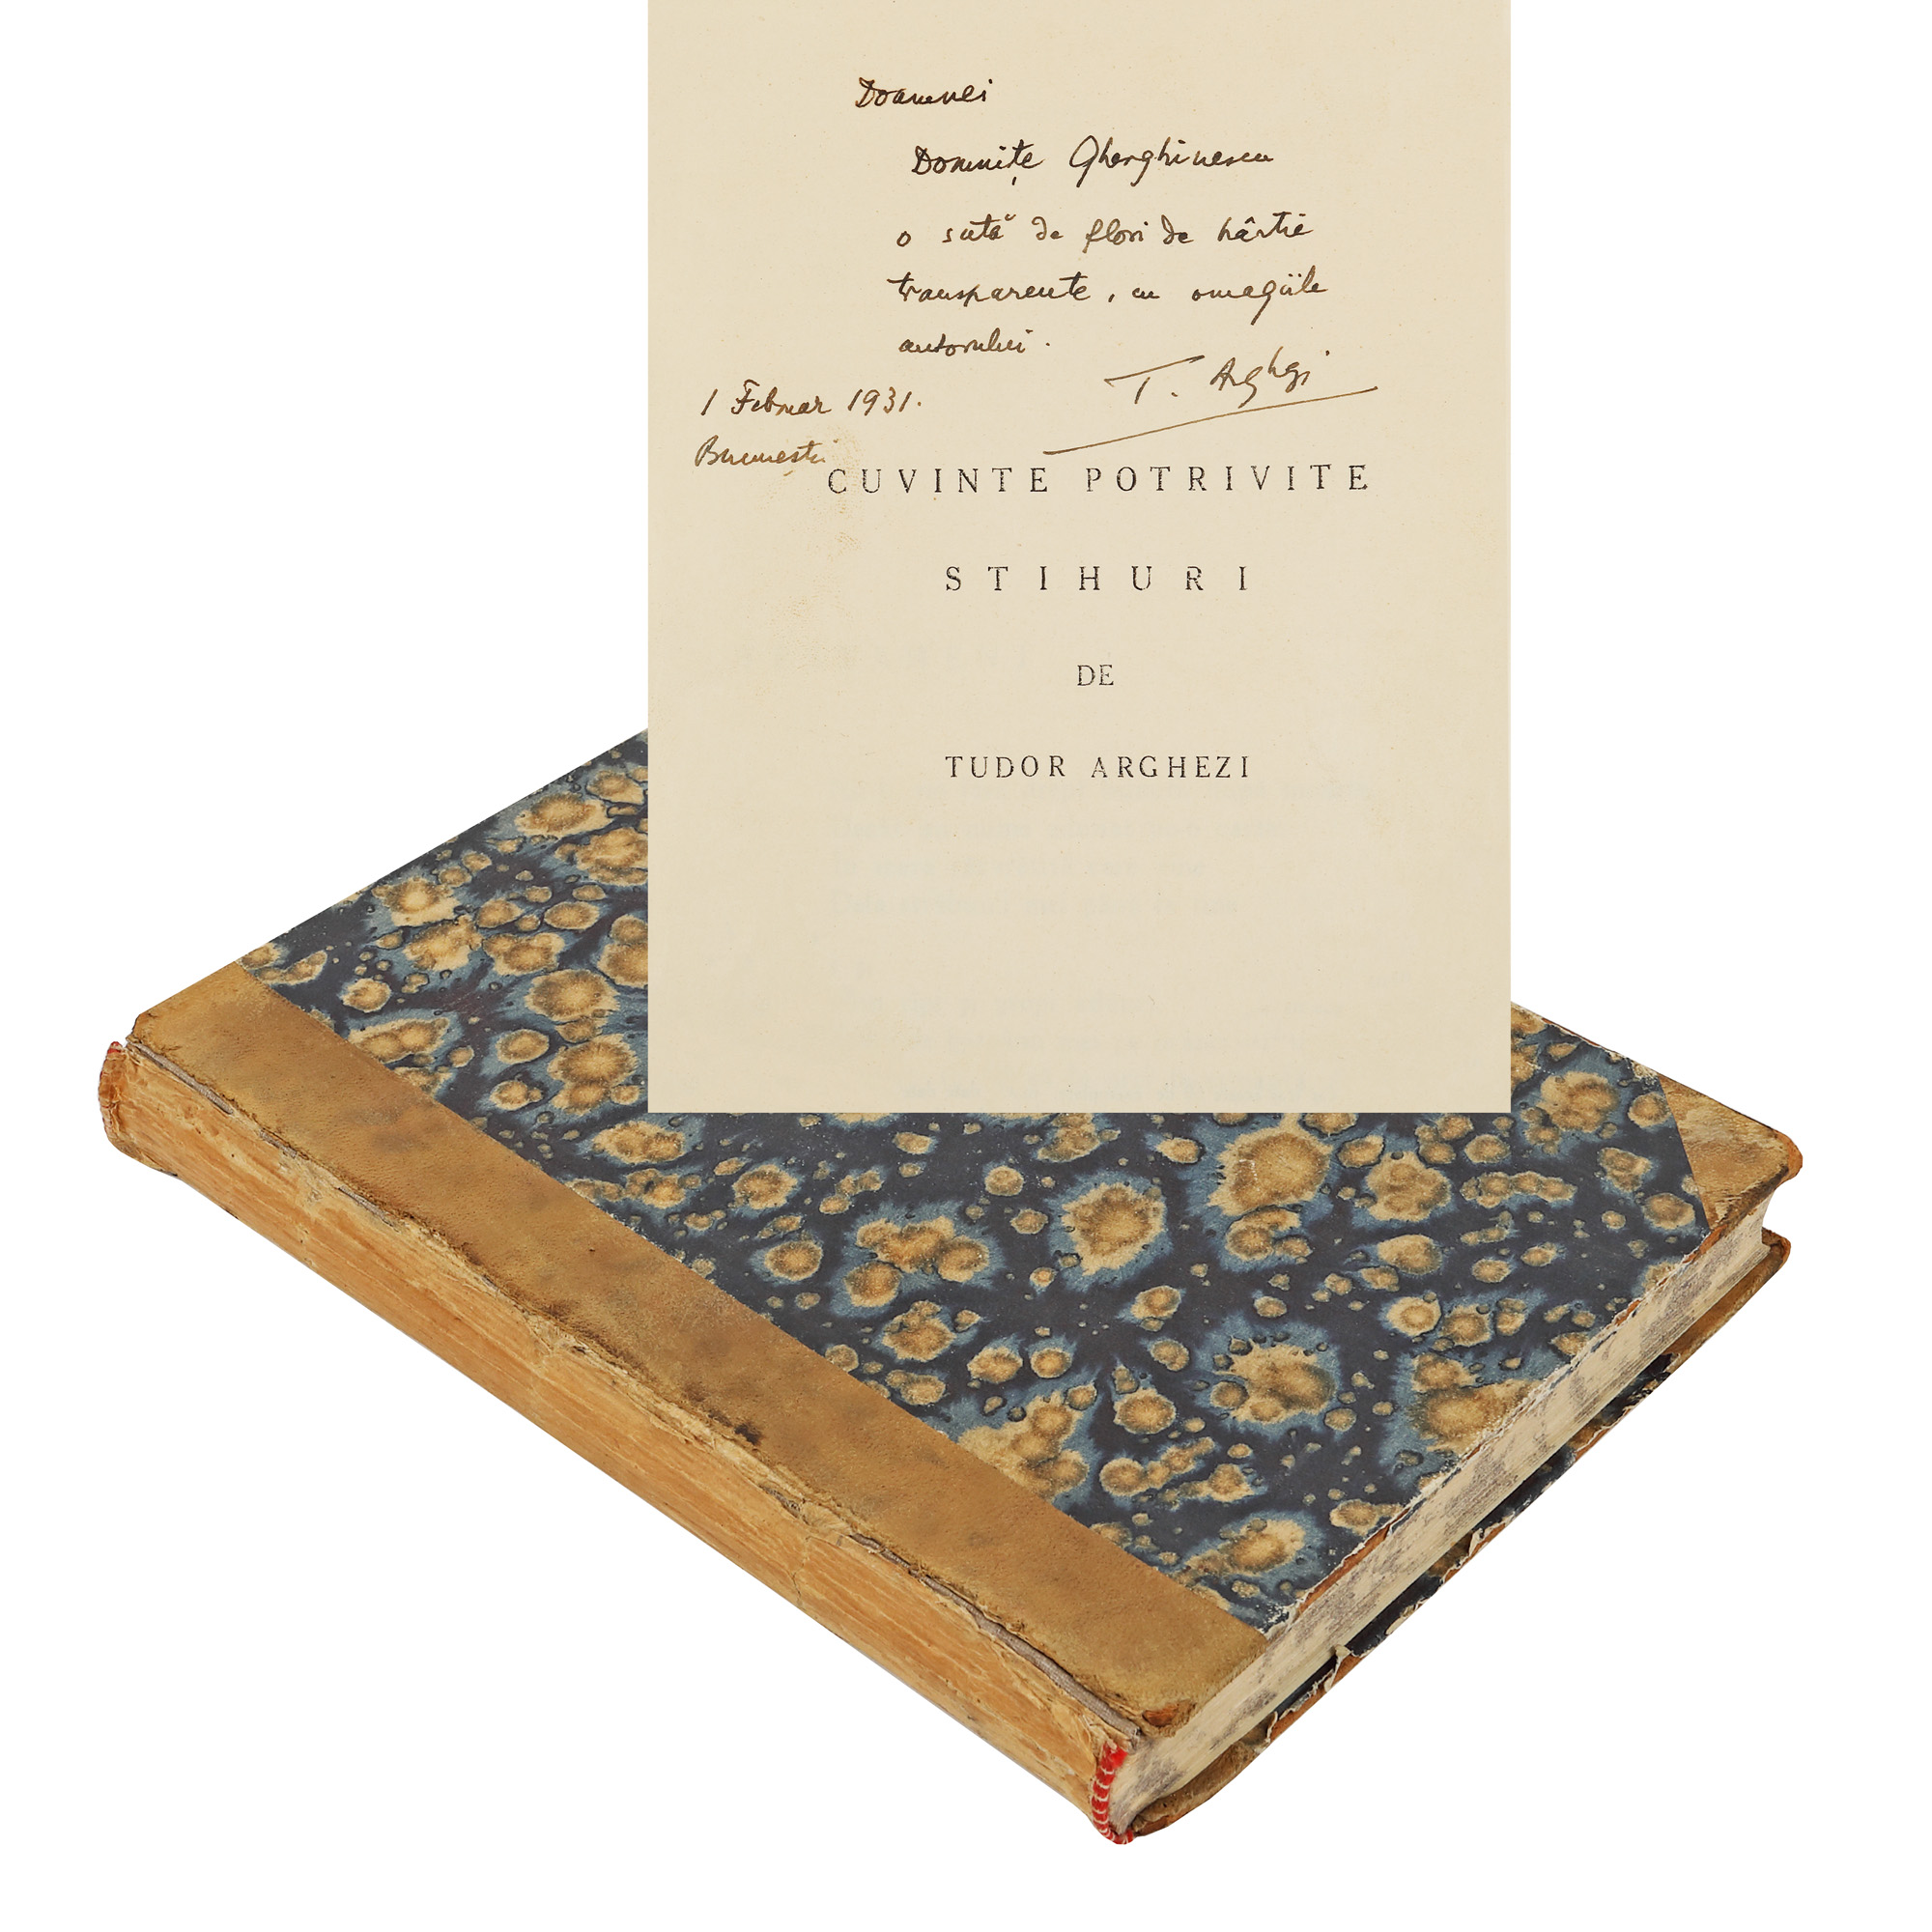 Doamnei
Domnițe Gherghinescu
o sută de flori de hârtie
transparente, cu omagiile
autorului.
T. Arghezi
1 Februar 1931.
București
CUVINTE POTRIVITE
STIHURI
DE
TUDOR ARGHEZI